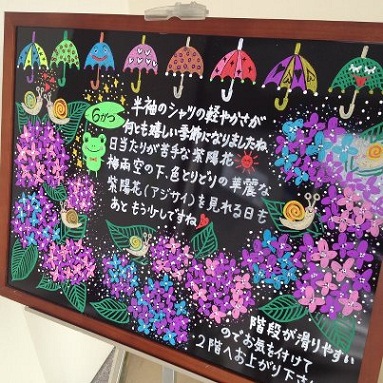 6がつ
半袖のシャツの軽やかさが
何とも嬉しい季節になりましたね
日当たりが苦手な紫陽花
梅雨空の下、色とりどりの華麗な
紫陽花(アジサイ)を見れる日も
あともう少しですね
階段が滑りやすい
のでお気を付けて
2階へお上がり下さ